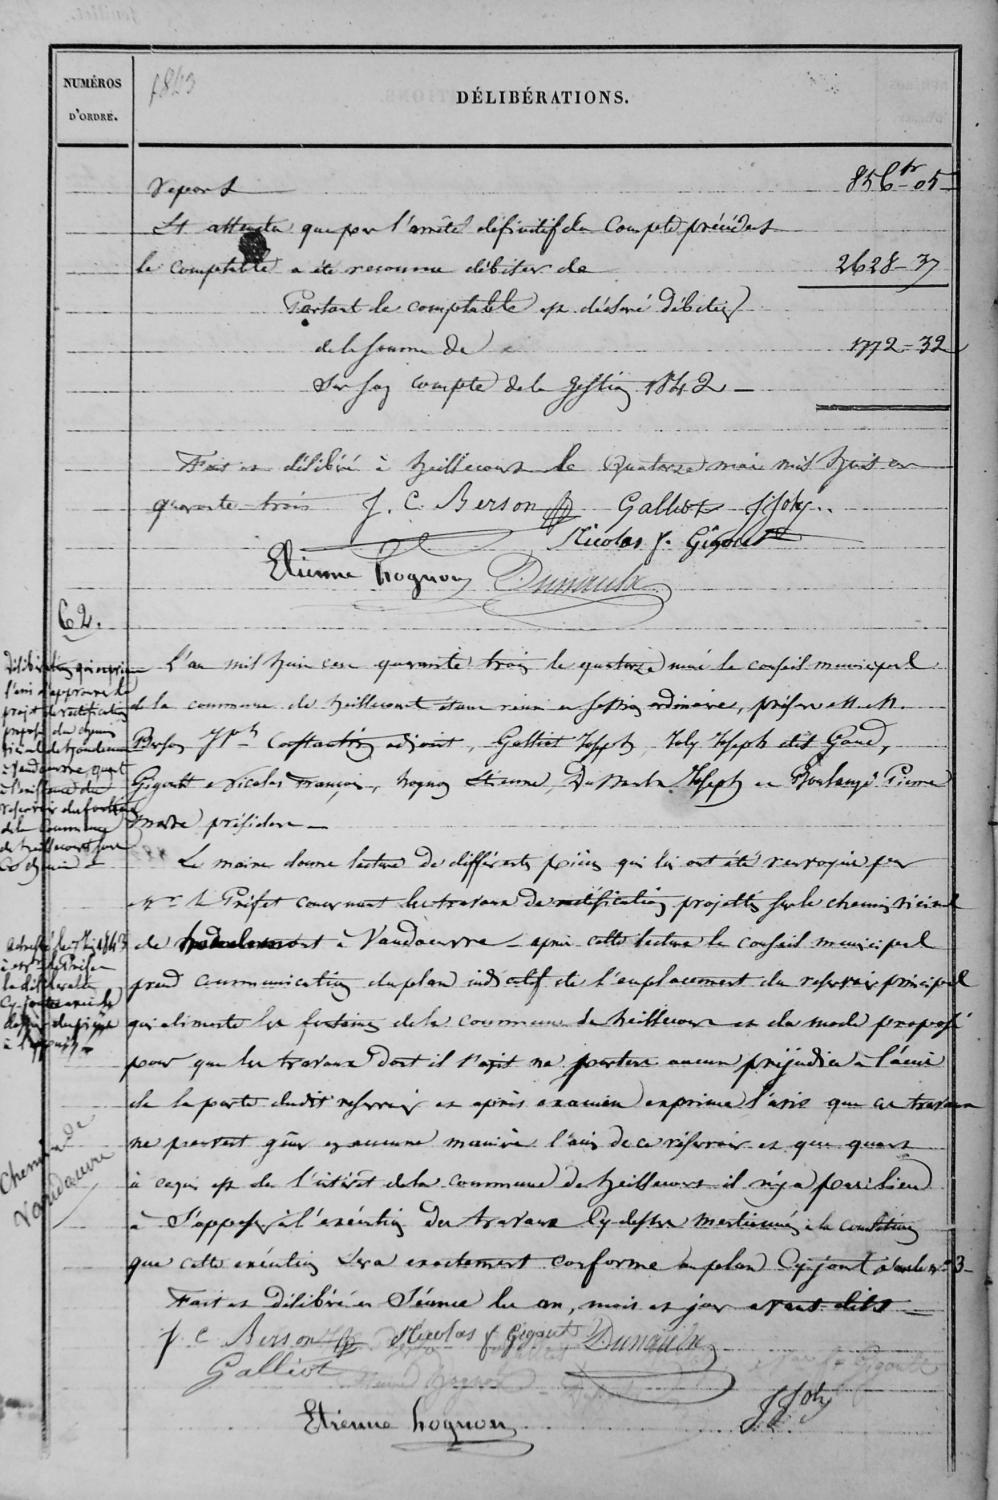 NUMÉROS
D'ORDRE.
1843
DÉLIBÉRATIONS.
Report 856 fr 05
Et attendu que par l'arrêté définitif du Compte précédent
le comptable a été reconnu débiteur de 2628-37
Partant le comptable est déclaré Débiteur
de la somme de 1772-32
Sur son compte de la Gestion 1842
Fait et délibéré à heillecourt le Quatorze mai mil huit cent
quarante trois J. C. Berson Galliot J Joly
Nicolas f. Gigout
Etienne hognon Dumaire
62.
L'an mil huit cent quarante trois le quatorze mai le conseil municipal
de la commune de heillecourt étant réuni en session ordinaire, présens M. M.
Berson Jph Constantin adjoint, Galliot Joseph, Joly Joseph dit Gand,
Gigoutt Nicolas François, hognon Etienne, Joseph et Boulangé Pierre
maire président
Le maire donne lecture de différentes pièces qui lui ont été renvoyées par
Mr le Préfet concernant les travaux de rectification projettés sur le chemin vicinal
de houdemont à Vandoeuvre - après cette lecture le conseil municipal
prend communication du plan indicatif de l'emplacement du réservoir principal
qui alimente les fontaines de la commune de heillecourt et du mode proposé
pour que les travaux dont il s'agit ne portent aucun préjudice à
de la porte dudit réservoir et après examen exprime l'avis que ces travaux
ne peuvent gêner en aucune manière de ce réservoir et que quant
à ce qui est de l'intérêt de la commune de heillecourt il n'y a pas lieu
à s'opposer à l'exécution des travaux cy dessus mentionnés à la condition
que cette exécution sera exactement conforme au plan cy joint sous le no 3
Fait et délibéré en Séance les an, mois et jour avant dits
J. C Berson Nicolas f Gigout Dumaire
Galliot
Etienne hognon J Joly
Délibération qui exprime
l'avis d'approuver le
projet de rectification
proposé du chemin
vicinal de houdemont
à Vandoeuvre, quant
à du
réservoir des fontaines
de la Commune
de heillecourt sur
ce chemin
adressé le 1843
à Mr le Préfet
la délibération
cy contre avec le
dossier des pièces
à l'appui
Chemin de
Vandoeuvre